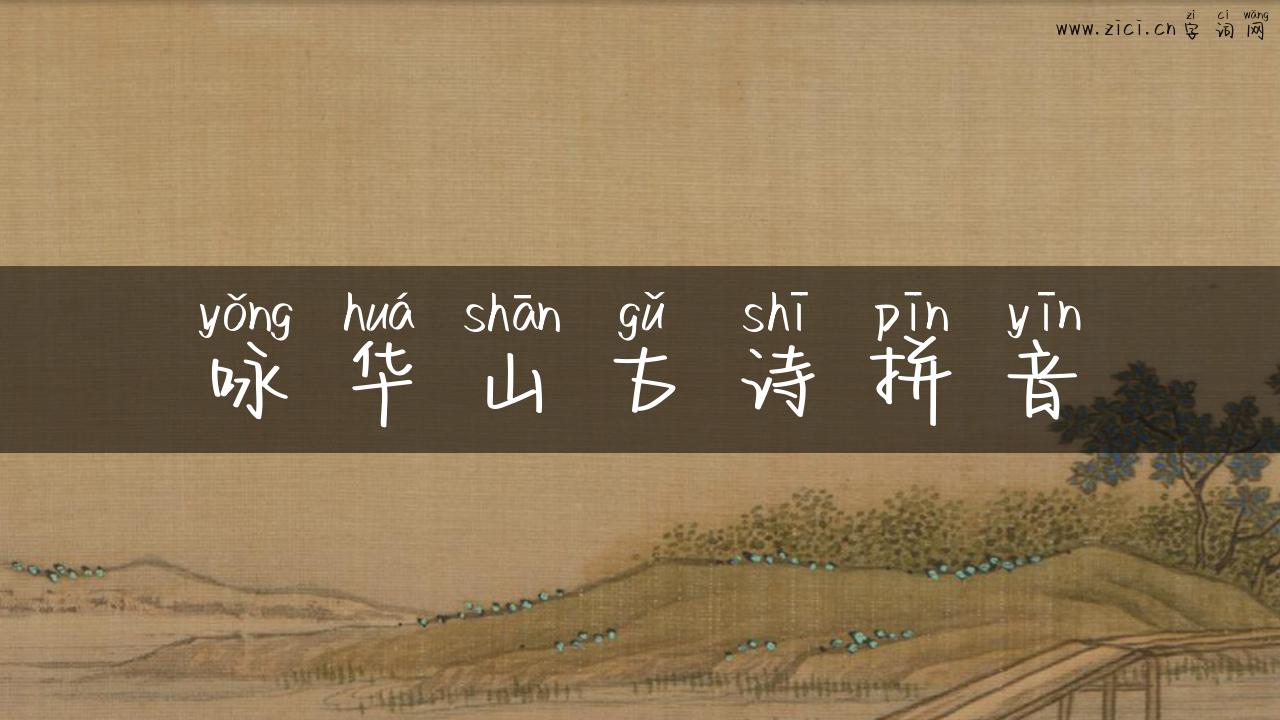 zì cí wǎng
www.zici.cn 字词网
yǒng huá shān gǔ shī pīn yīn
咏华山古诗拼音